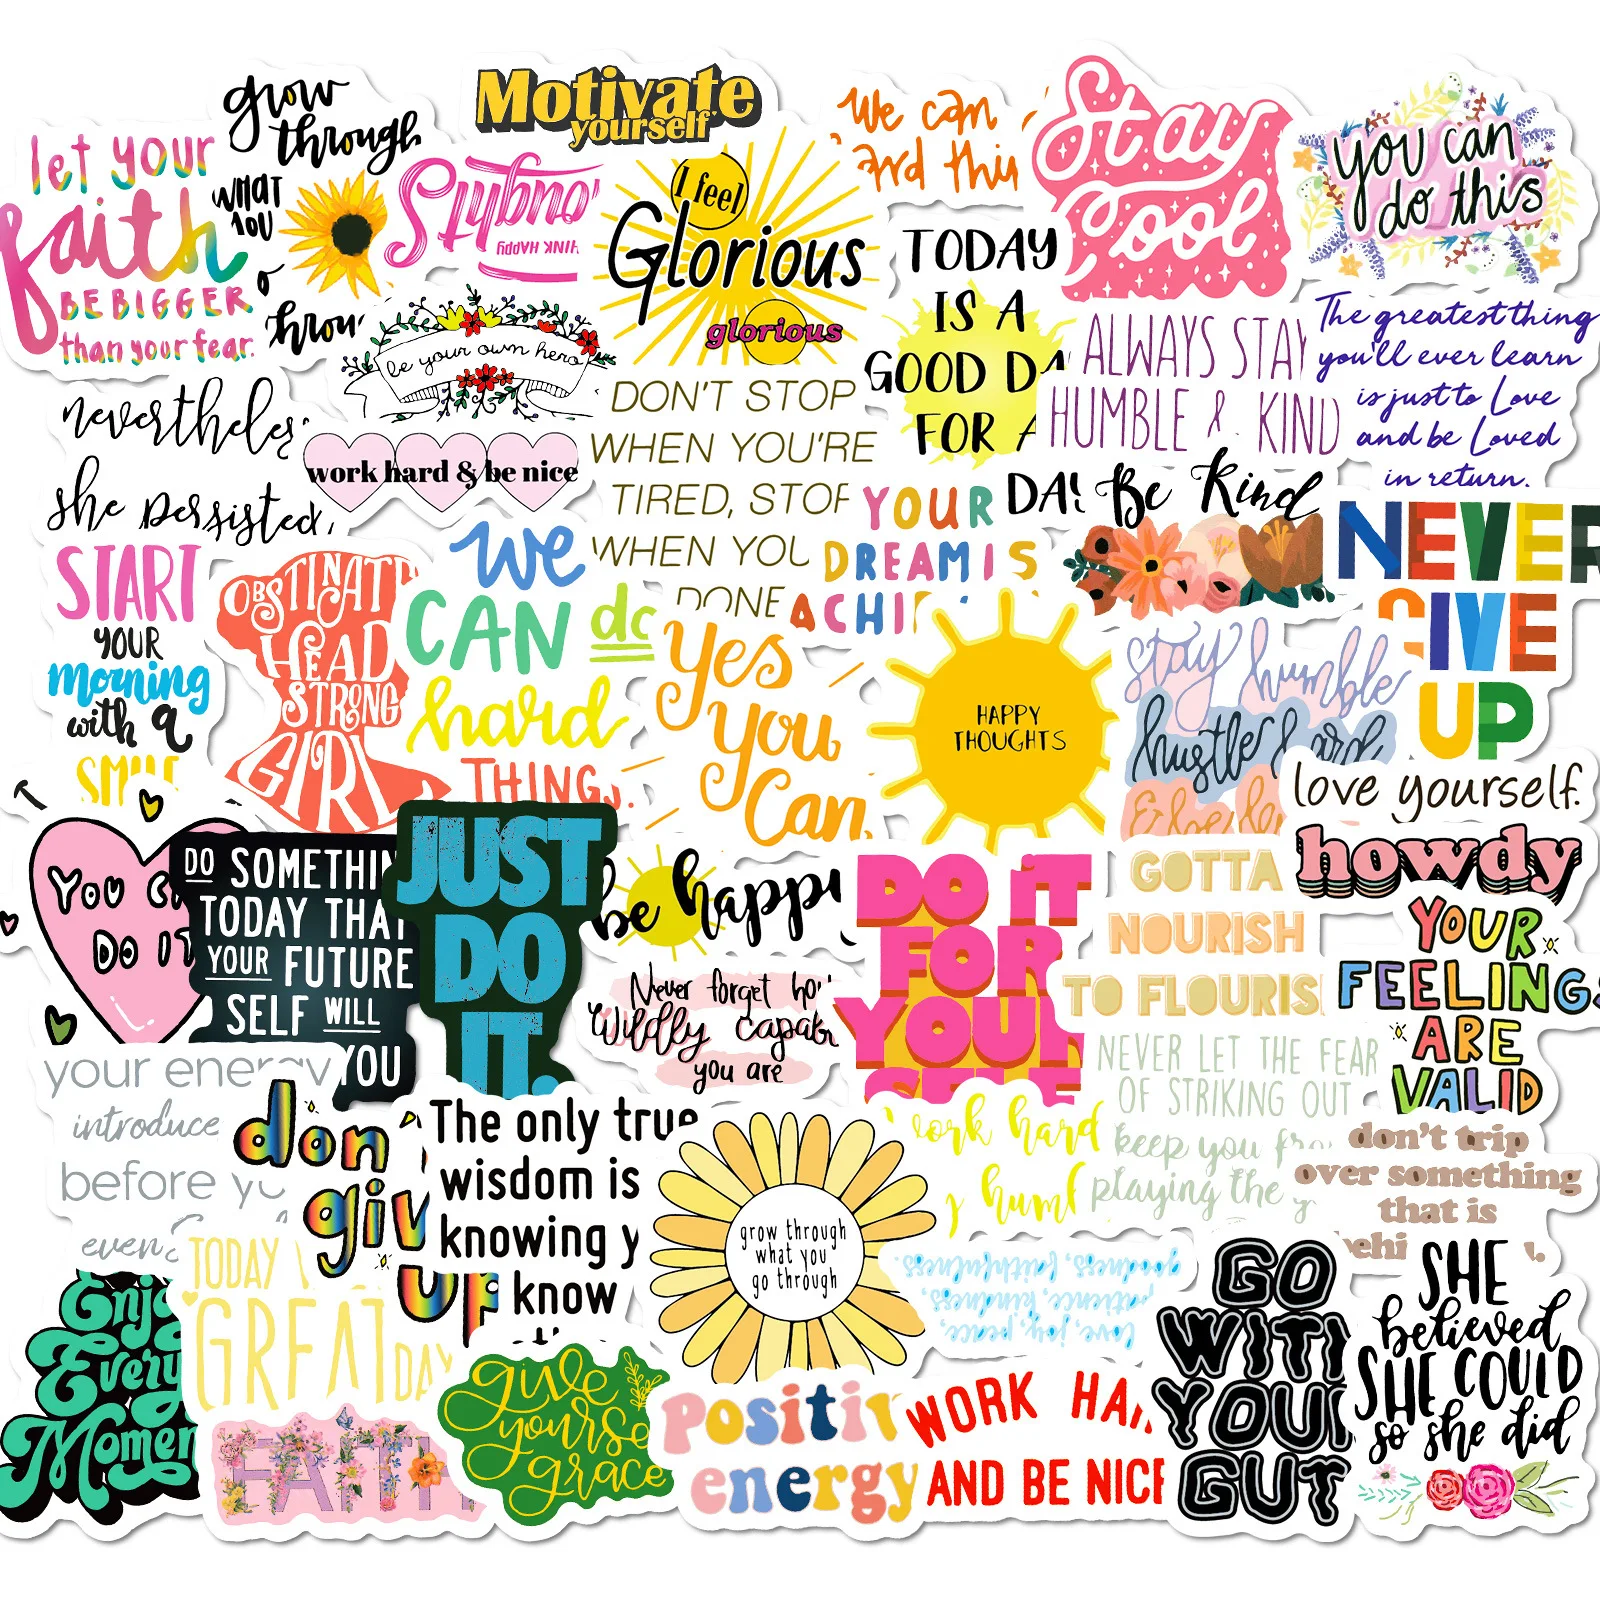 let your
faith
BE BIGGER
than your fear.
grow
through
WHAT
YOU
Motivate
yourself
I feel
Glorious
glorious
We can
Stay
Cool
you can
do this
be your own hero
TODAY
IS A
GOOD
FOR A
DAY
ALWAYS STAY
HUMBLE & KIND
The greatest thing
you'll ever learn
is just to Love
and be Loved
in return.
she persisted
work hard & be nice
DON'T STOP
WHEN YOU'RE
TIRED, STOP
WHEN YOU
DONE
YOUR
DREAM IS
Be Kind
NEVER
GIVE
UP
START
YOUR
morning
with a
OBSTINATE
HEAD
STRONG
GIRL
We
CAN do
hard
THINGS.
Yes
You
Can
HAPPY
THOUGHTS
stay humble
hustle hard
love yourself.
howdy
YOU
DO IT
DO SOMETHING
TODAY THAT
YOUR FUTURE
SELF WILL
YOU
JUST
DO
IT.
be happy
Never forget how
Wildly capable
you are
DO iT
FOR
YOUR
SELF
GOTTA
NOURISH
TO FLOURISH
YOUR
FEELINGS
ARE
VALID
your energy
introduce
before
even
don
giv
up
The only true
wisdom is
knowing
know
grow through
what you
go through
work hard
NEVER LET THE FEAR
OF STRIKING OUT
keep you
playing the
don't trip
over something
that is
goodness, faithfulness
patience, kindness
love, joy, peace,
Enjoy
Every
Moment
TODAY
GREAT
DAY
FAITH
give
yourself
grace
positive
energy
WORK HARD
AND BE NICE
GO
WITH
YOUR
GUT
SHE
believed
SHE COULD
so she did